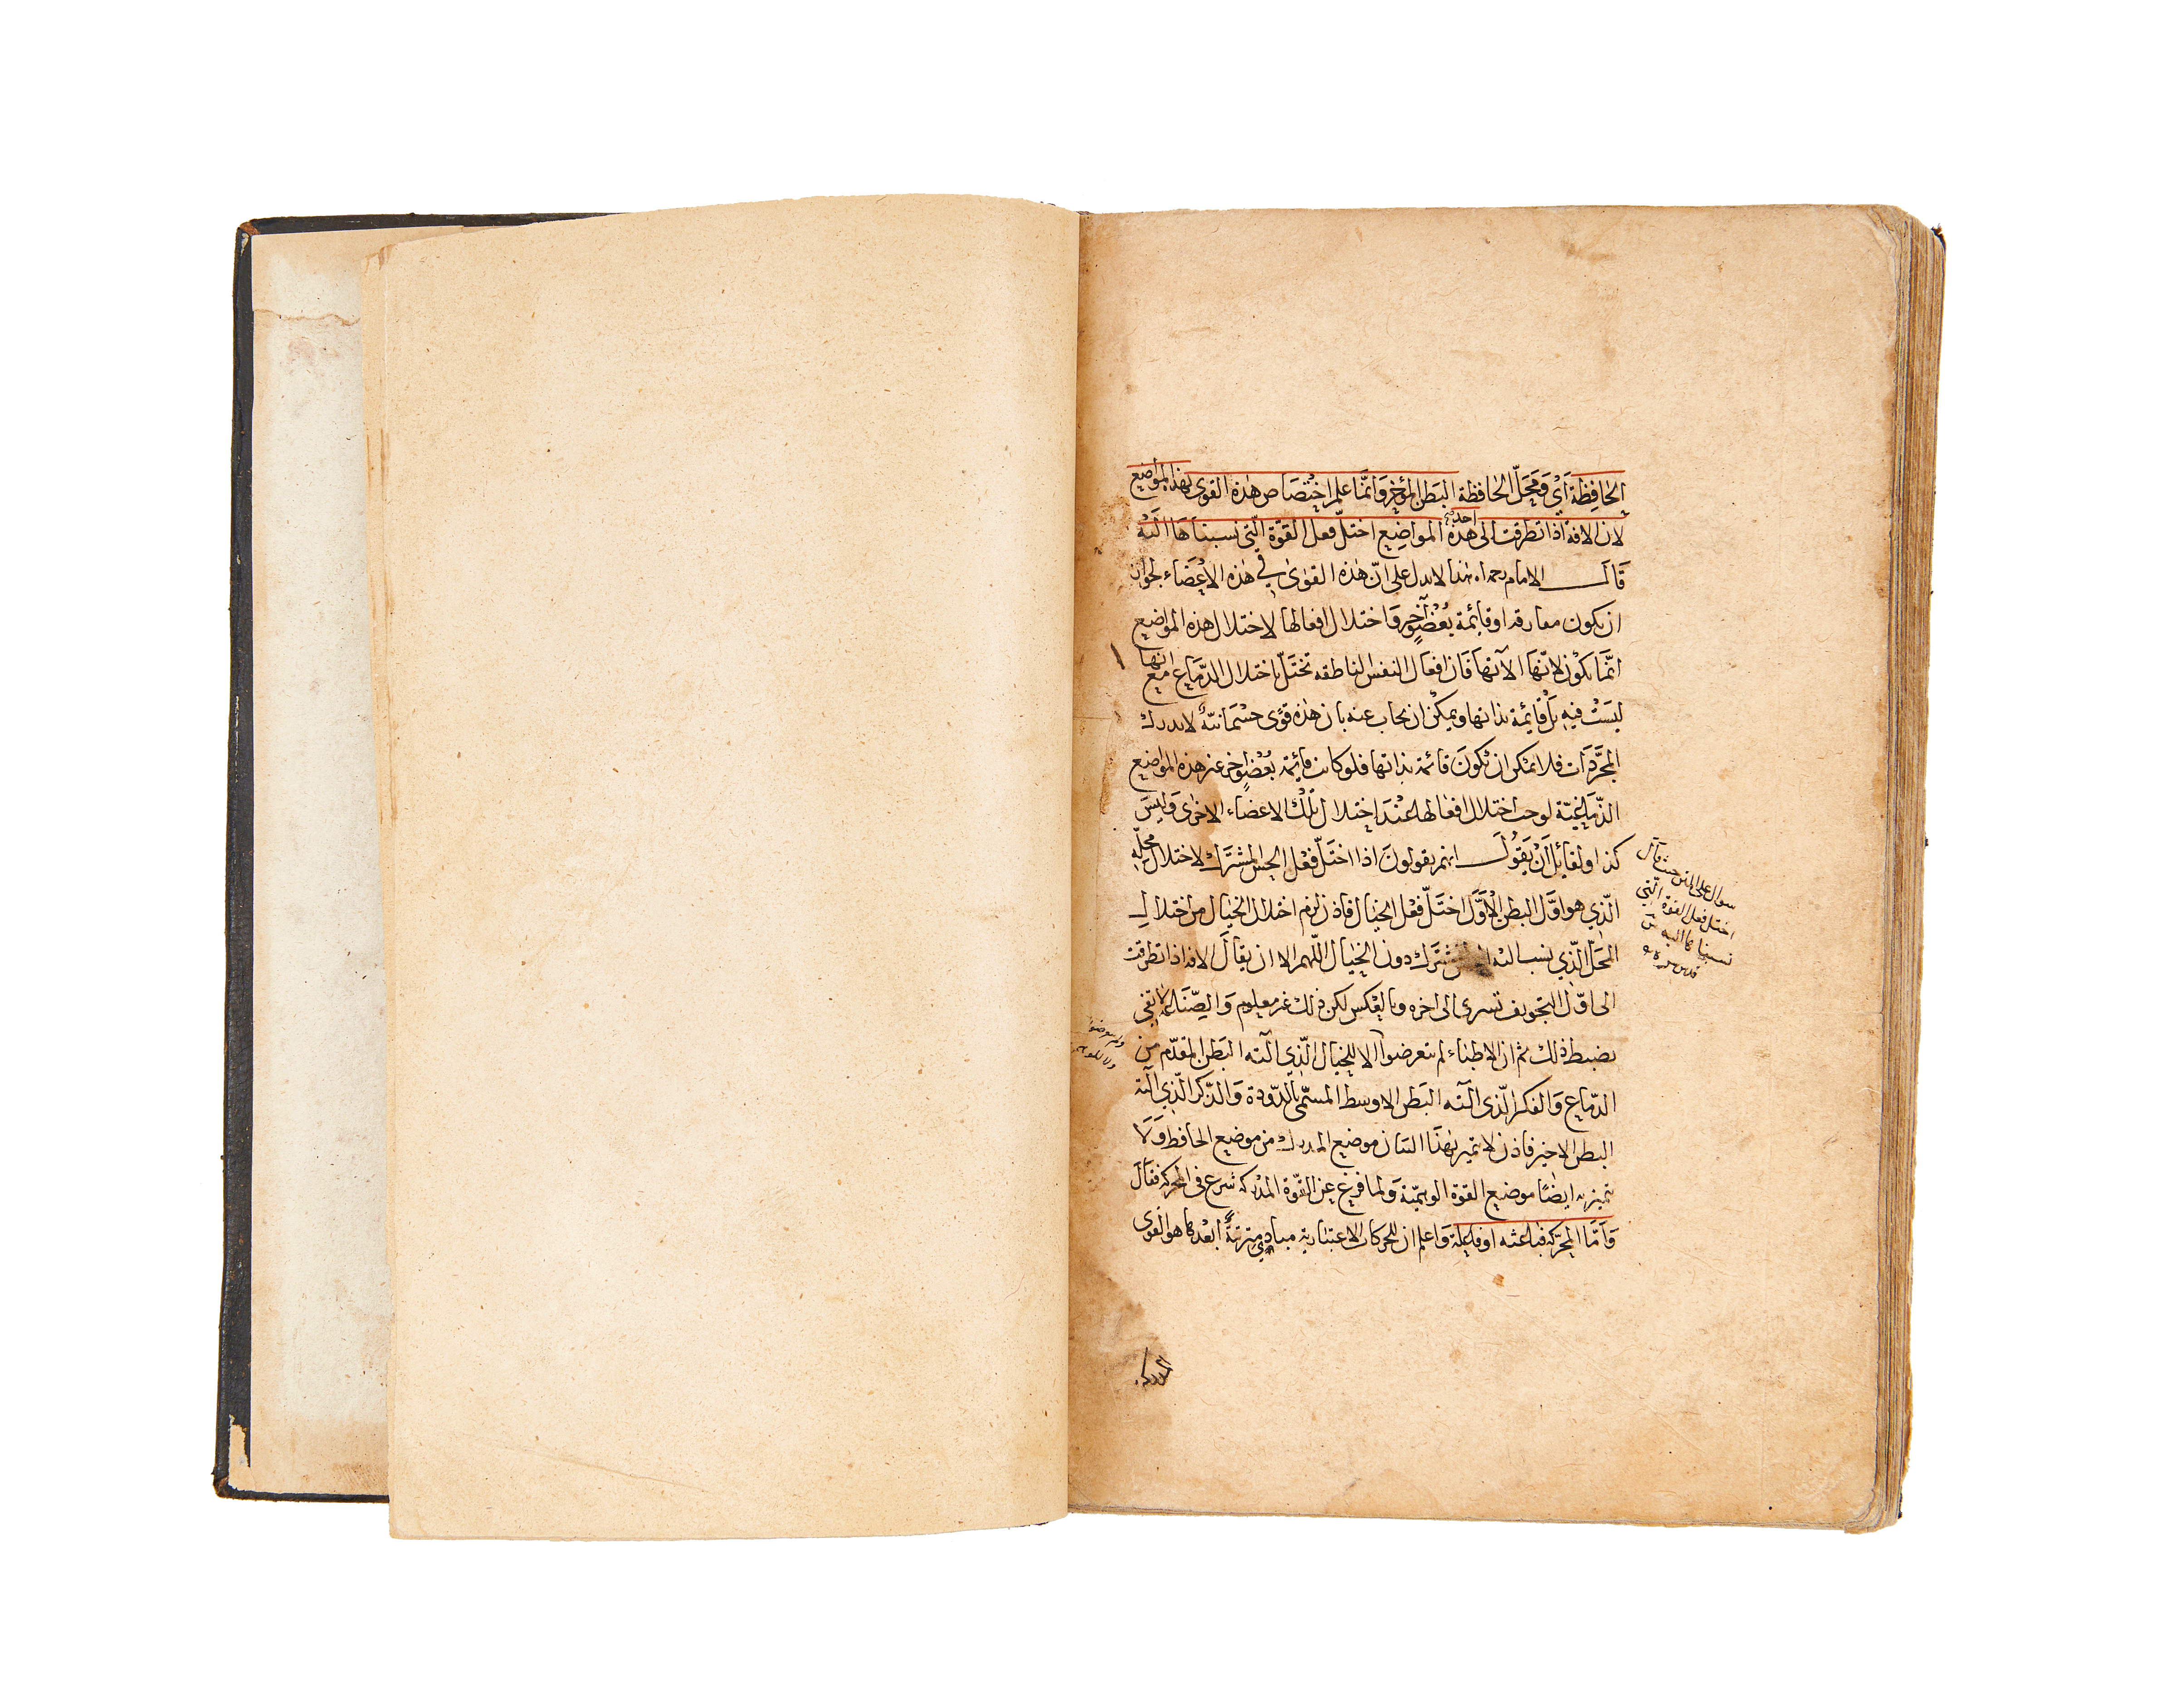 الحافظة أي ومحل الحافظة البطن المؤخر وانما علم اختصاص هذه القوى بهذه المواضع
لان الافة اذا تطرقت الى احدى هذه المواضع اختل فعل القوة التي نسبناها اليه
قال الامام رحمه الله هذا لا يدل على ان هذه القوى في هذه الاعضاء لجواز
ان يكون مفارقة او قائمة بعضو آخر واختلال افعالها لاختلال هذه المواضع
انما يكون لانها آلاتها فان افعال النفس الناطقة تختل باختلال الدماغ مع انها
ليست فيه بل قائمة بذاتها ويمكن ان يجاب عنه بان هذه قوى جسمانية لا يدرك
المجردات فلا يمكن ان تكون قائمة بذاتها فلو كانت قائمة بعضو اخر غير هذه المواضع
الدماغية لوجب اختلال افعالها عند اختلال تلك الاعضاء الاخرى وليس
كذا ولقائل أن يقول انهم يقولون اذا اختل فعل الحس المشترك لاختلال محله
الذي هو اول البطن الاول اختل فعل الخيال فاذن لزم اختلال الخيال من اختلال
المحل الذي ينسب اليه المشترك دون الخيال اللهم الا ان يقال الافة اذا تطرقت
الى اول التجويف تسرى الى اخره وبالعكس لكن ذلك غير معلوم والصناعة لا تفي
بضبط ذلك ثم ان الاطباء لم يتعرضوا الا للخيال الذي آلته البطن المقدم من
الدماغ والفكر الذي آلته البطن الاوسط المسمى بالدودة والذكر الذي آلته
البطن الاخير فاذن لا يتميز بهذا البيان موضع المدرك من موضع الحافظ ولا
يتميز به ايضا موضع القوة الوهمية ولما فرغ عن القوة المدركة شرع في المحركة فقال
وأما المحركة فباعثة او فاعلة واعلم ان للحركات الاختيارية مبادي مترتبة ابعدها هو القوى
سوال على المتن حيث قال
اختل فعل القوة التي
نسبناها اليه